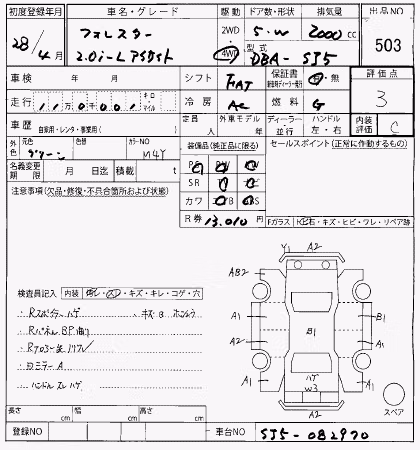 初度登録年月 車名・グレード 駆動 ドア数・形状 排気量 出品NO
28/4月 フォレスター 2WD 5・W 2000cc 503
2.0i-L アイサイト 4WD 型式 DBA-SJ5
車検 年 月 シフト FAT 保証書 有・無 評価点
走行 冷房 AC 燃料 G 3
車歴 自家用・レンタ・事業用( ) 定員 人 外車モデル 年 ディーラー 並行 ハンドル 左・右 内装評価 C
外色 グリーン 元色 色替 カラーNO M4Y 装備品(純正品に限る) セールスポイント(正常に作動するもの)
名義変更期限 月 日迄 積載 t PS PW
注意事項(欠品・修復・不具合箇所および状態) SR
カワ
R券 13,010円 Fガラス
キズ・ヒビ・ワレ・リペア跡
Y1 A2
AB2
A1 B1
A1 B1
A2 A1
A1 A1
ハゲ
W3
A2
スペア
検査員記入 内装 キズ・キレ・コゲ・穴
Rスポイラーハゲ キズ B
Rパネル BP
Rフロアー
ヨミラー A
ハンドル スレ ハゲ
長さ cm 幅 cm 高さ cm
登録NO 車台NO SJ5-082970